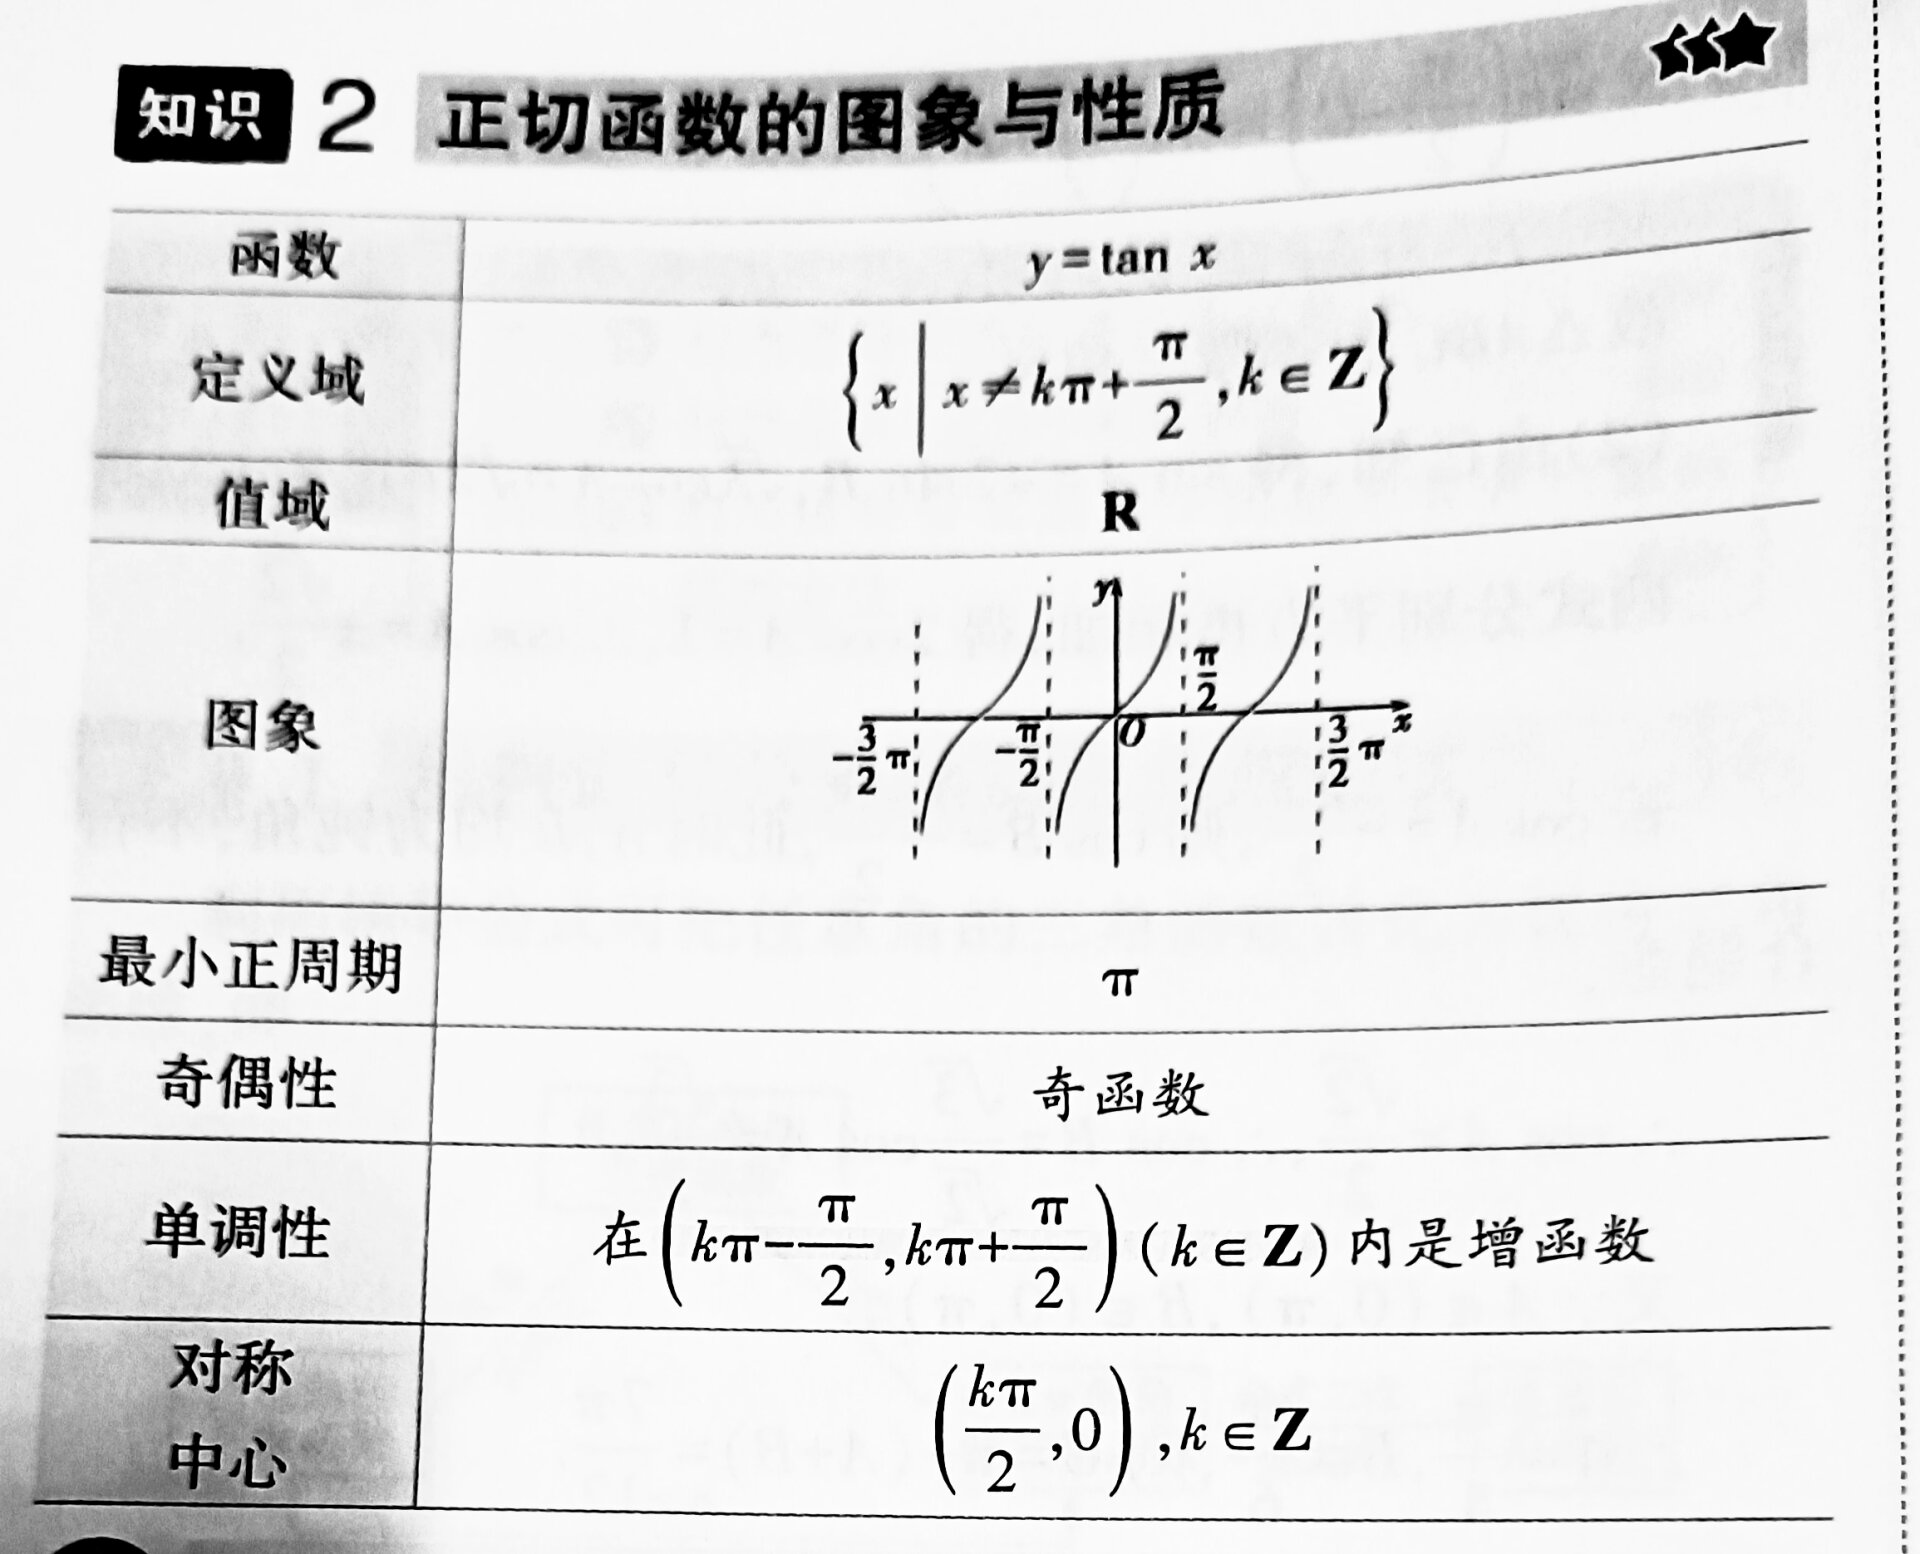 知识 2 正切函数的图象与性质
函数 y=tan x
定义域 {x | x≠kπ+π/2,k∈Z}
值域 R
图象
y
π/2
x
O
-3/2 π
-π/2
3/2 π
最小正周期 π
奇偶性 奇函数
单调性 在(kπ-π/2,kπ+π/2)(k∈Z)内是增函数
对称
中心 (kπ/2,0),k∈Z